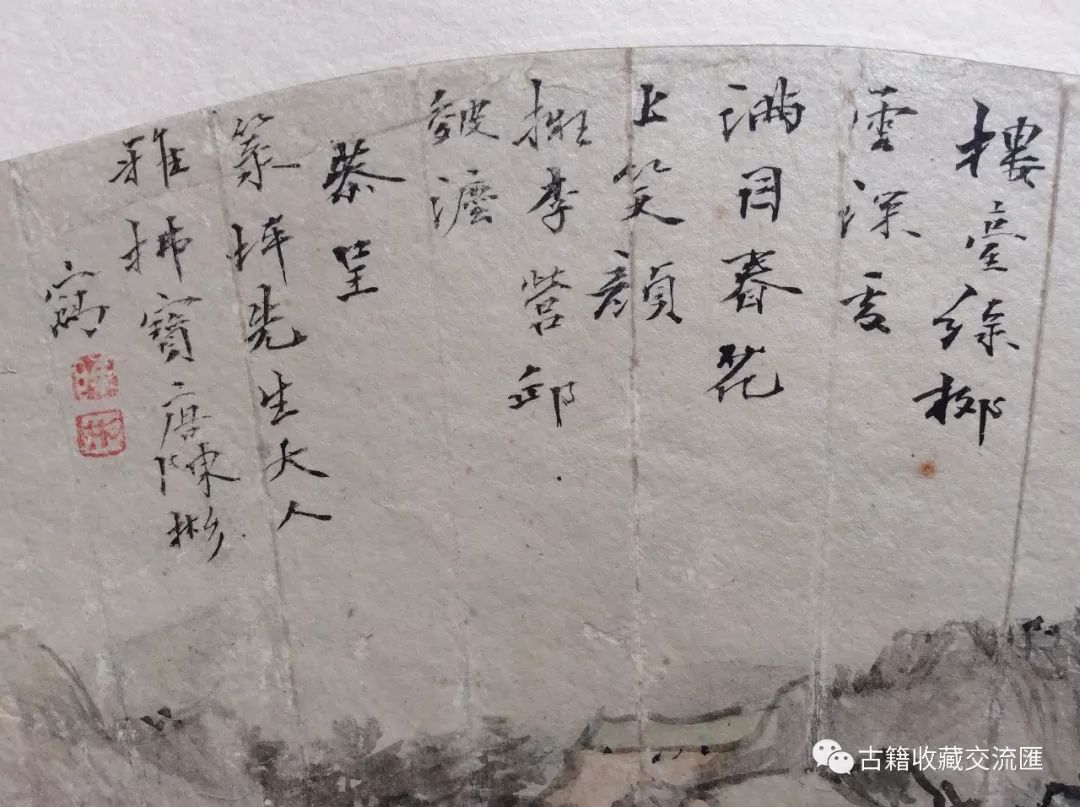 樓臺綠柳
雲深處
滿目春花
上笑顏
撫李營邱
皴法
恭呈
篆坪先生大人
雅拂寶唐陳彬
寫
古籍收藏交流匯